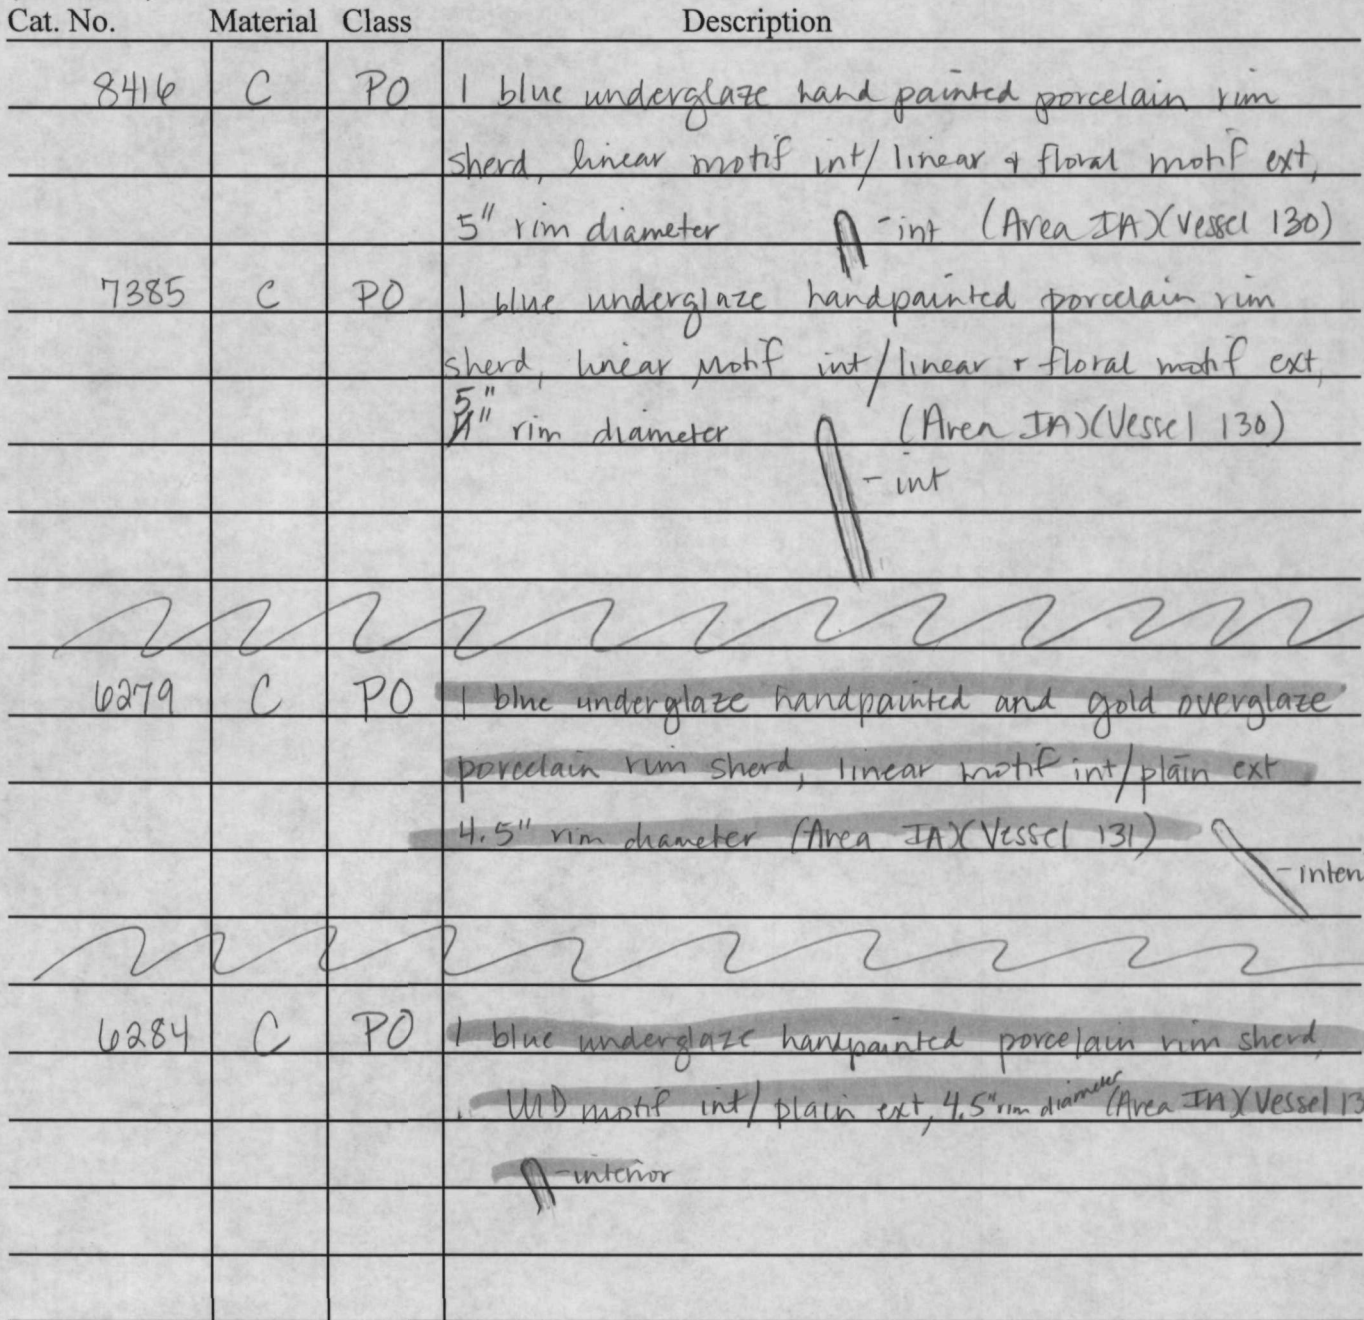 Cat. No. Material Class Description
8416 C PO 1 blue underglaze hand painted porcelain rim
sherd, linear motif int/linear + floral motif ext,
5" rim diameter - int (Area IA)(Vessel 130)
7385 C PO 1 blue underglaze handpainted porcelain rim
sherd, linear motif int/linear + floral motif ext,
5"
" rim diameter (Area IA)(Vessel 130)
- int
6279 C PO 1 blue underglaze handpainted and gold overglaze
porcelain rim sherd, linear motif int/plain ext
4.5" rim diameter (Area IA)(Vessel 131)
- inten
6284 C PO 1 blue underglaze handpainted porcelain rim sherd,
UID motif int/plain ext, 4.5" rim diameter (Area IA)(Vessel 13
- interior